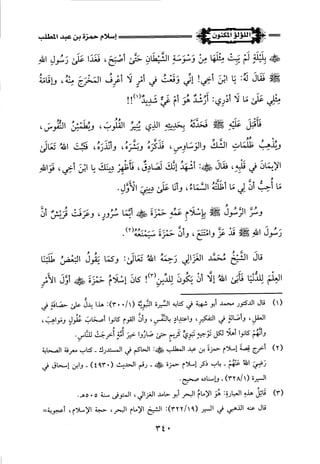 اللؤلؤ المكنون
إسلام حمزة بن عبد المطلب
بليلة لم يبت مثلها من وسوسة الشيطان حتى أصبح، فغدا على رسول الله
ﷺ فقال له: يا ابن أخي! إني وقعت في أمر لا أعرف المخرج منه، وإقامة
مثلي على ما لا أدري: أرشد هو أم غي شديد(١)!!
فأقبل عليه ﷺ فحدثه بحديثه الذي ينير القلوب، ويطمئن النفوس،
ويذهب ظلمات الشك والوساوس، فذكره وبشره، وأنذره، فثبت الله تعالى
الإيمان في قلبه، فقال ﷺ: أشهد إنك لصادق، فأظهر دينك يا ابن أخي، فوالله
ما أحب أن لي ما أظلته السماء، وأنا على ديني الأول.
وسر الرسول ﷺ بإسلام عمه حمزة ﷺ أيما سرور، وعرفت قريش أن
رسول الله ﷺ قد عز وامتنع، وأن حمزة سيمنعه(٢).
قال الشيخ محمد الغزالي رحمه الله تعالى: وكما يقول البعض طلبنا
العلم للدنيا فأبى الله إلا أن يكون للدين(٣)! كان إسلام حمزة ﷺ أول الأمر
(١) قال الدكتور محمد أبو شهبة في كتابه السيرة النبوية (٣٠٠/١): هذا يدل على حصافة في
العقل، وأصالة في التفكير، واعتداد بالنفس، وأن القوم كانوا أصحاب عقول ومواهب،
وأنهم كانوا أهلا لكل توجيه نبوي كريم حتى صاروا خير أمة أخرجت للناس.
(٢) أخرج قصة إسلام حمزة بن عبد المطلب ﷺ: الحاكم في المستدرك - كتاب معرفة الصحابة
رضي الله عنهم - باب ذكر إسلام حمزة ﷺ - رقم الحديث (٤٩٣٠) - وابن إسحاق في
السيرة (٣٢٨/١) - وإسناده صحيح.
(٣) قائل هذه العبارة: هو الإمام البحر أبو حامد الغزالي، المتوفى سنة ٥٠٥هـ.
قال عنه الذهبي في السير (٣٢٢/١٩): الشيخ الإمام البحر، حجة الإسلام، أعجوبة=
٣٤٠